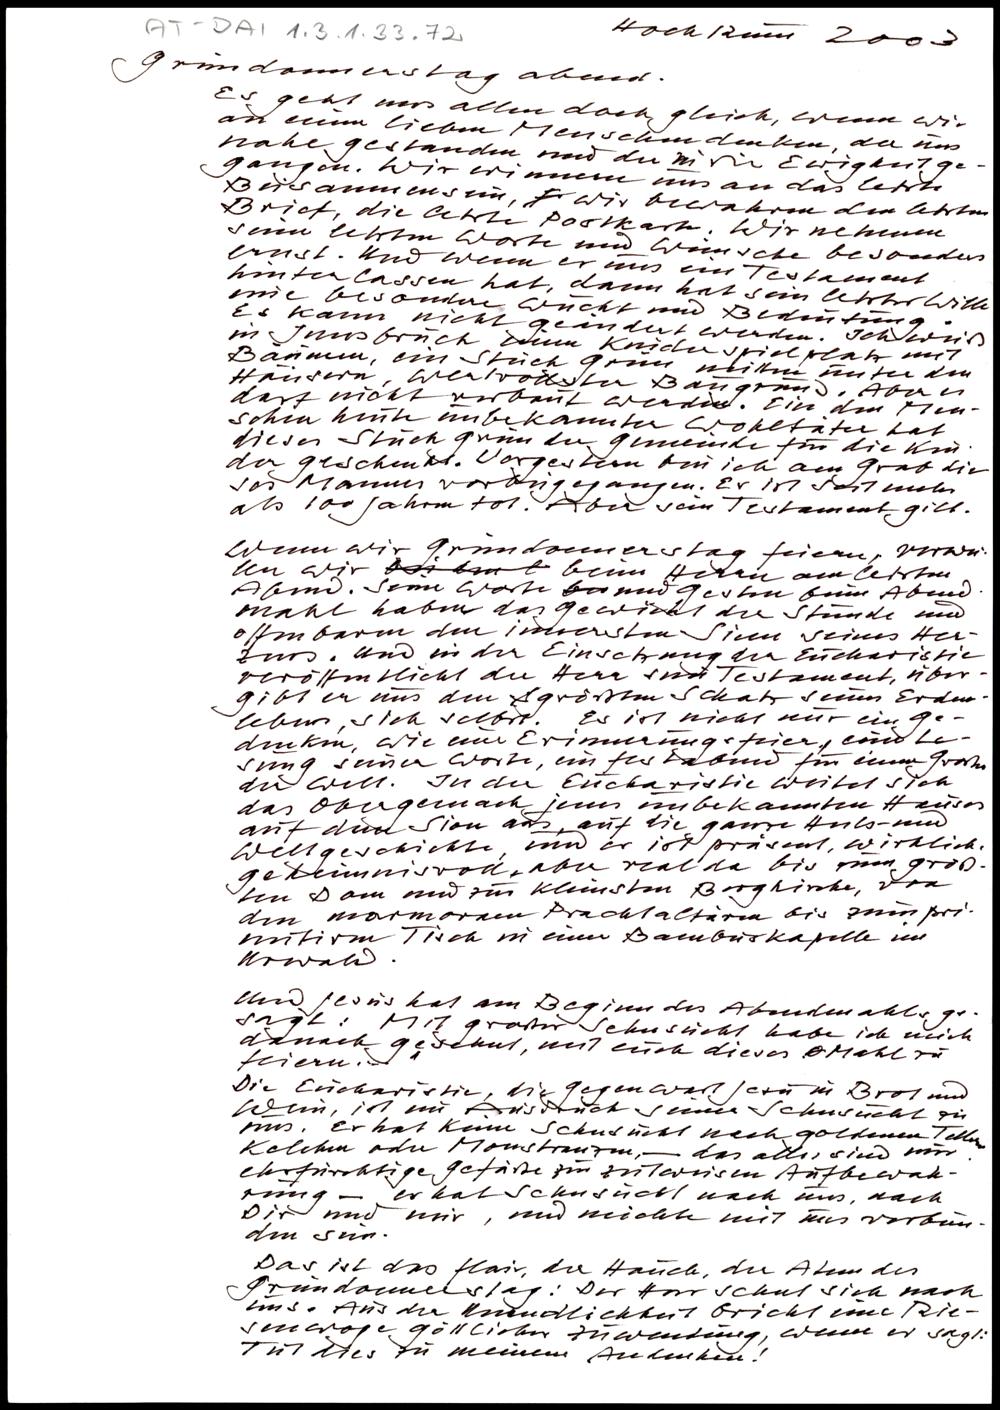 AT-DAI 1.3.1.33.72
Hochrum 2003
Gründonnerstag abend.
Es geht uns allen doch gleich, wenn wir
an einen lieben Menschen denken, der uns
nahe gestanden und der in die Ewigkeit ge-
gangen. Wir erinnern uns an das letzte
Beisammensein, wir bewahren den letzten
Brief, die letzte Postkarte. Wir nehmen
seine letzten Worte und Wünsche besonders
ernst. Und wenn er uns ein Testament
hinterlassen hat, dann hat sein letzter Wille
eine besondere Wucht und Bedeutung.
Es kann nicht geändert werden. Ich weiß
in Innsbruck einen Kinderspielplatz mit
Bäumen, ein Stück Grün mitten unter den
Häusern, wertvollster Baugrund. Aber er
darf nicht verbaut werden. Ein den Men-
schen heute unbekannter Wohltäter hat
dieses Stück Grün der Gemeinde für die Kin-
der geschenkt. Vorgestern bin ich am Grab die-
ses Mannes vorbeigegangen. Er ist seit mehr
als 100 Jahren tot. Aber sein Testament gilt.
Wenn wir Gründonnerstag feiern, verwei-
len wir beim Herrn am letzten
Abend. Seine Worte und Gesten beim Abend-
mahl haben das Gewicht der Stunde und
offenbaren den innersten Sinn seines Her-
zens. Und in der Einsetzung der Eucharistie
veröffentlicht der Herr sein Testament, über-
gibt er uns den größten Schatz seines Erden-
lebens, sich selbst. Es ist nicht nur ein Ge-
denken, wie eine Erinnerungsfeier, eine Le-
sung seiner Worte, ein Festabend für einen Großen
der Welt. In der Eucharistie weitet sich
das Obergemach jenes unbekannten Hauses
auf dem Sion aus, auf die ganze Heils- und
Weltgeschichte, und er ist präsent, wirklich,
geheimnisvoll, aber real da bis zum größ-
ten Dom und zur kleinsten Bergkirche, von
den marmornen Prachtaltären bis zum pri-
mitiven Tisch in einer Bambuskapelle im
Urwald.
Und Jesus hat am Beginn des Abendmahls ge-
sagt: Mit großer Sehnsucht habe ich mich
danach gesehnt, mit euch dieses Mahl zu
feiern.
Die Eucharistie, die Gegenwart Jesu in Brot und
Wein, ist ein Ausdruck seiner Sehnsucht zu
uns. Er hat keine Sehnsucht nach goldenen Tellern,
Kelchen oder Monstranzen, – das alles sind nur
ehrfürchtige Gefäße zur zeitweisen Aufbewah-
rung – er hat Sehnsucht nach uns, nach
Dir und mir, und möchte mit uns verbun-
den sein.
Das ist das Flair, der Hauch, der Atem des
Gründonnerstag: Der Herr sehnt sich nach
uns. Aus der Unendlichkeit bricht eine Rie-
senwoge göttlicher Zuwendung, wenn er sagt:
Tut dies zu meinem Andenken!